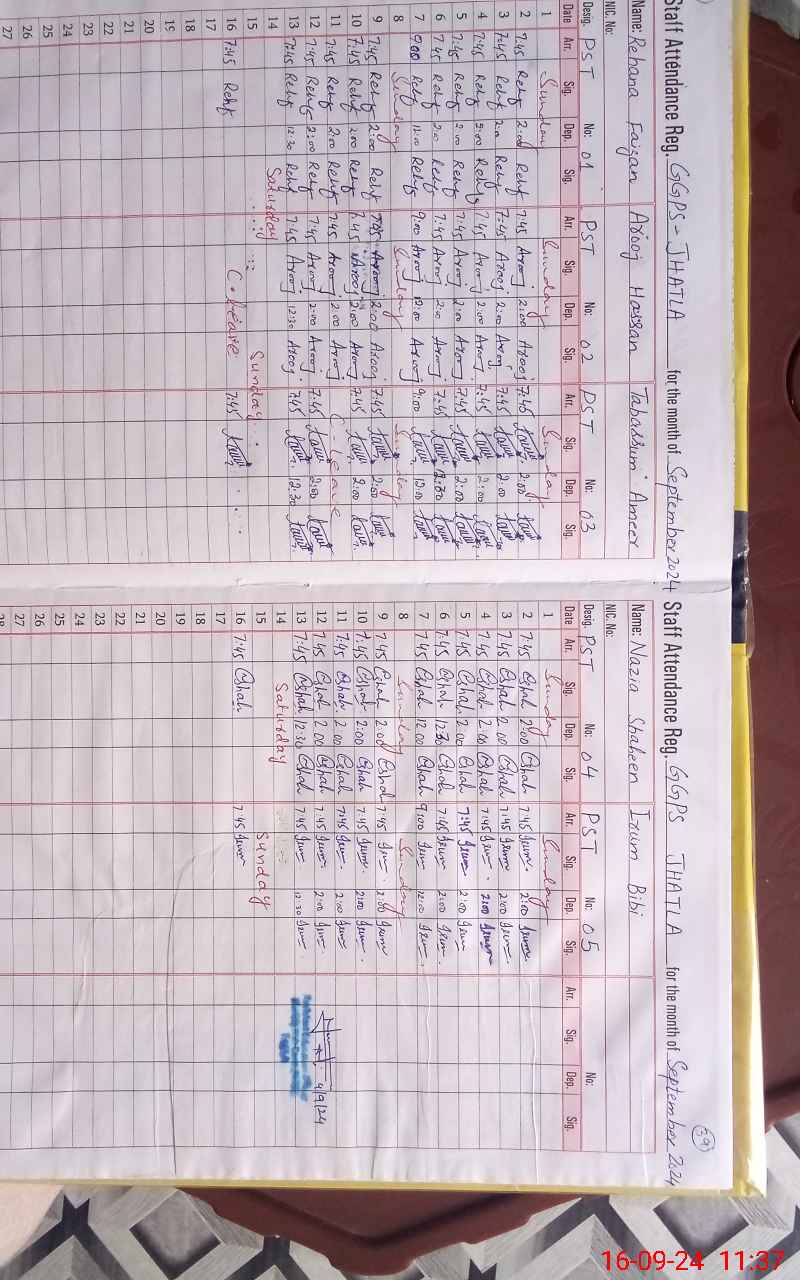 Staff Attendance Reg. GGPS - JHATLA for the month of September 2024
Name: Rehana Faizan Arooj Hassan Tabassum Ameer
NIC. No:
Desig. PST No: 01 PST No: 02 PST No: 03
Date Arr. Sig. Dep. Sig. Arr. Sig. Dep. Sig. Arr. Sig. Dep. Sig.
1 Sunday Sunday Sunday
2 7:45 Rehf 2:00 Rehf 7:45 Arooj 2:00 Arooj 7:45 2:00
3 7:45 Rehf 2:00 Rehf 7:45 Arooj 2:00 Arooj 7:45 2:00
4 7:45 Rehf 2:00 Rehf 7:45 Arooj 2:00 Arooj 7:45 2:00
5 7:45 Rehf 2:00 Rehf 7:45 Arooj 2:00 Arooj 7:45 2:00
6 7:45 Rehf 2:0 Rehf 7:45 Arooj 2:0 Arooj 7:45 12:30
7 9:00 Rehf 12:00 Rehf 9:00 Arooj 12:00 Arooj 9:00 12:00
8 Sunday Sunday Sunday
9 7:45 Rehf 2:00 Rehf 7:45 Arooj 2:00 Arooj 7:45 2:00
10 7:45 Rehf 2:00 Rehf 7:45 Arooj 2:00 Arooj 7:45 2:00
11 7:45 Rehf 2:00 Rehf 7:45 Arooj 2:00 Arooj C-Leave
12 7:45 Rehf 2:00 Rehf 7:45 Arooj 2:00 Arooj 7:45 2:00
13 7:45 Rehf 12:30 Rehf 7:45 Arooj 12:30 Arooj 7:45 12:30
14 Saturday
15 Sunday
16 7:45 Rehf C-leave 7:45
17
18
19
20
21
22
23
24
25
26
27
Staff Attendance Reg. GGPS JHATLA for the month of September 2024
39
Name: Nazia Shaheen Irum Bibi
NIC. No:
Desig. PST No: 04 PST No: 05 No:
Date Arr. Sig. Dep. Sig. Arr. Sig. Dep. Sig. Arr. Sig. Dep. Sig.
1 Sunday Sunday
2 7:45 Cshah 2:00 Cshah 7:45 Irum 2:00 Irum
3 7:45 Cshah 2:00 Cshah 7:45 Irum 2:00 Irum
4 7:45 Cshah 2:00 Cshah 7:45 Irum 2:00 Irum
5 7:45 Cshah 2:00 Cshah 7:45 Irum 2:00 Irum
6 7:45 Cshah 12:30 Cshah 7:45 Irum 2:00 Irum
7 7:45 Cshah 12:00 Cshah 9:00 Irum 12:00 Irum
8 Sunday Sunday
9 7:45 Cshah 2:00 Cshah 7:45 Irum 2:00 Irum
10 7:45 Cshah 2:00 Cshah 7:45 Irum 2:00 Irum
11 7:45 Cshah 2:00 Cshah 7:45 Irum 2:00 Irum
12 7:45 Cshah 2:00 Cshah 7:45 Irum 2:00 Irum 4/9/24
13 7:45 Cshah 12:30 Cshah 7:45 Irum 12:30 Irum
14 Saturday
15 Sunday
16 7:45 Cshah 7:45 Irum
17
18
19
20
21
22
23
24
25
26
27
28
16-09-24 11:37